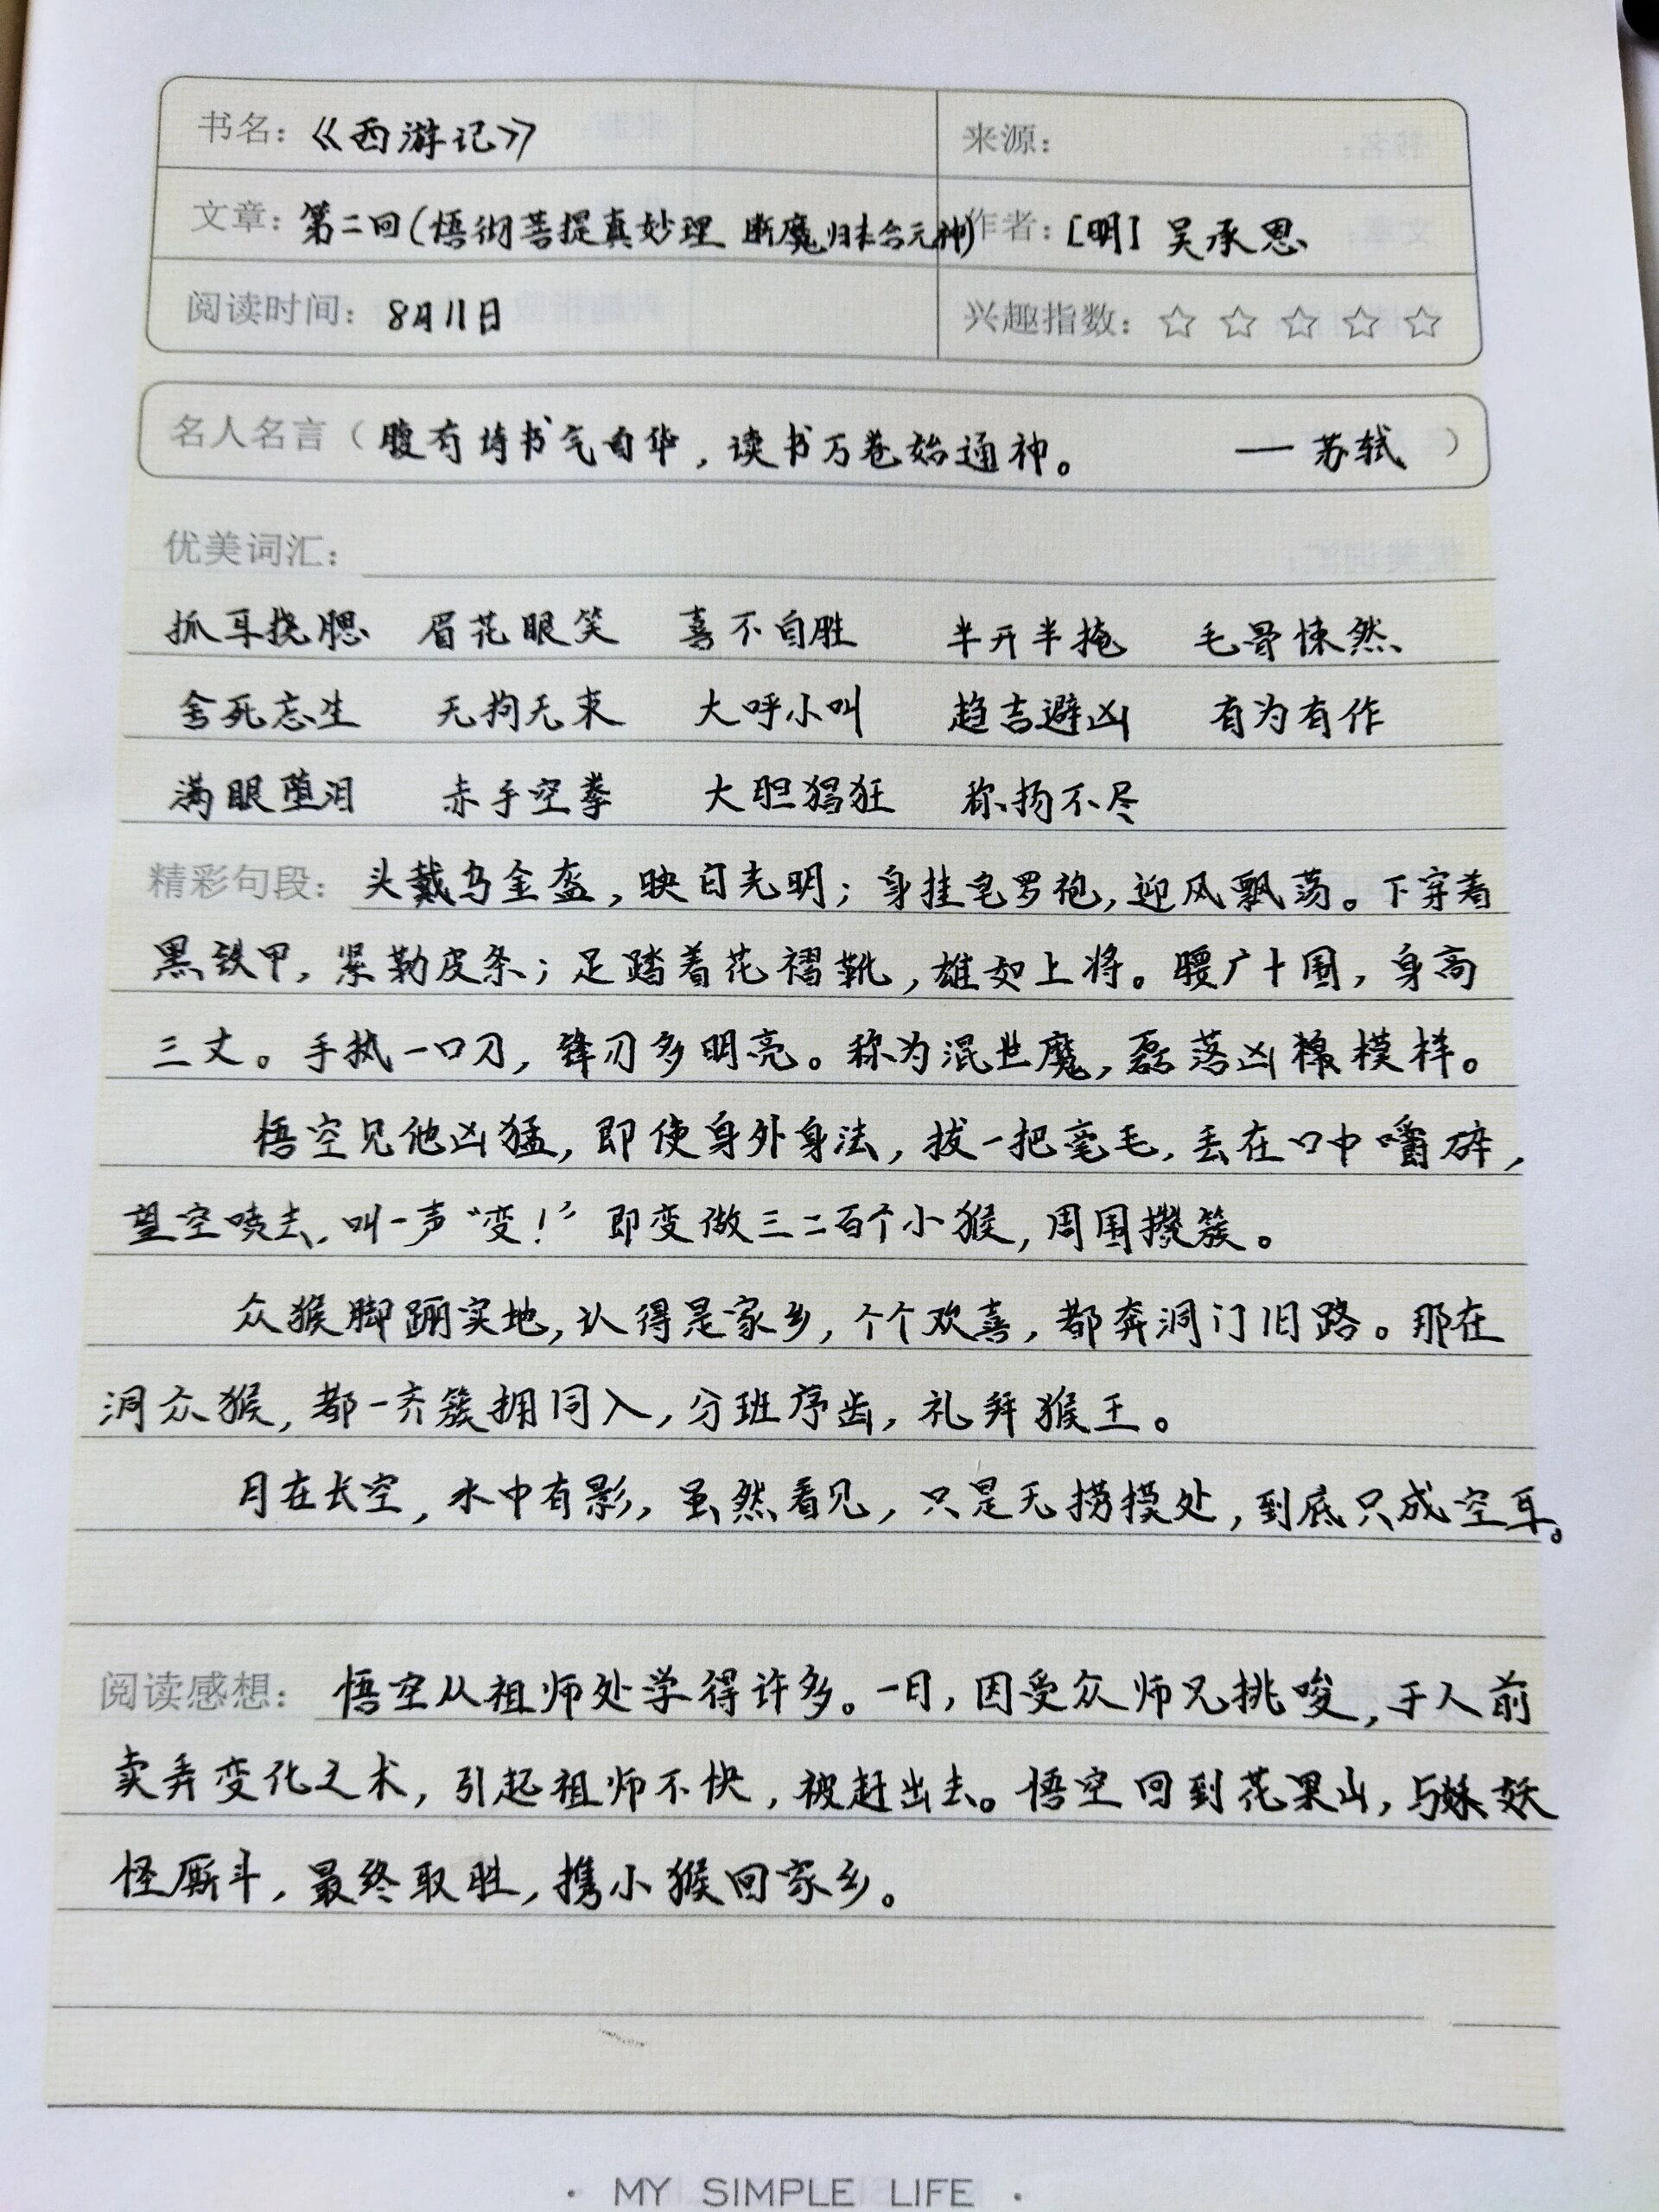 书名：《西游记》 来源：
文章：第二回（悟彻菩提真妙理 断魔归本合元神） 作者：[明] 吴承恩
阅读时间：8月11日 兴趣指数：☆ ☆ ☆ ☆ ☆
名人名言（腹有诗书气自华，读书万卷始通神。 — 苏轼）
优美词汇：
抓耳挠腮 眉花眼笑 喜不自胜 半开半掩 毛骨悚然
舍死忘生 无拘无束 大呼小叫 趋吉避凶 有为有作
满眼堕泪 赤手空拳 大胆猖狂 称扬不尽
精彩句段：头戴乌金盔，映日光明；身挂皂罗袍，迎风飘荡。下穿着
黑铁甲，紧勒皮条；足踏着花褶靴，雄如上将。腰广十围，身高
三丈。手执一口刀，锋刃多明亮。称为混世魔，磊落凶模样。
悟空见他凶猛，即使身外身法，拔一把毫毛，丢在口中嚼碎，
望空喷去，叫一声“变！”即变做三二百个小猴，周围攒簇。
众猴脚踊实地，认得是家乡，个个欢喜，都奔洞门旧路。那在
洞众猴，都一齐簇拥同入，分班序齿，礼拜猴王。
月在长空，水中有影，虽然看见，只是无捞摸处，到底只成空耳。
阅读感想：悟空从祖师处学得许多。一日，因受众师兄挑唆，于人前
卖弄变化之术，引起祖师不快，被赶出去。悟空回到花果山，与妖
怪厮斗，最终取胜，携小猴回家乡。
· MY SIMPLE LIFE ·